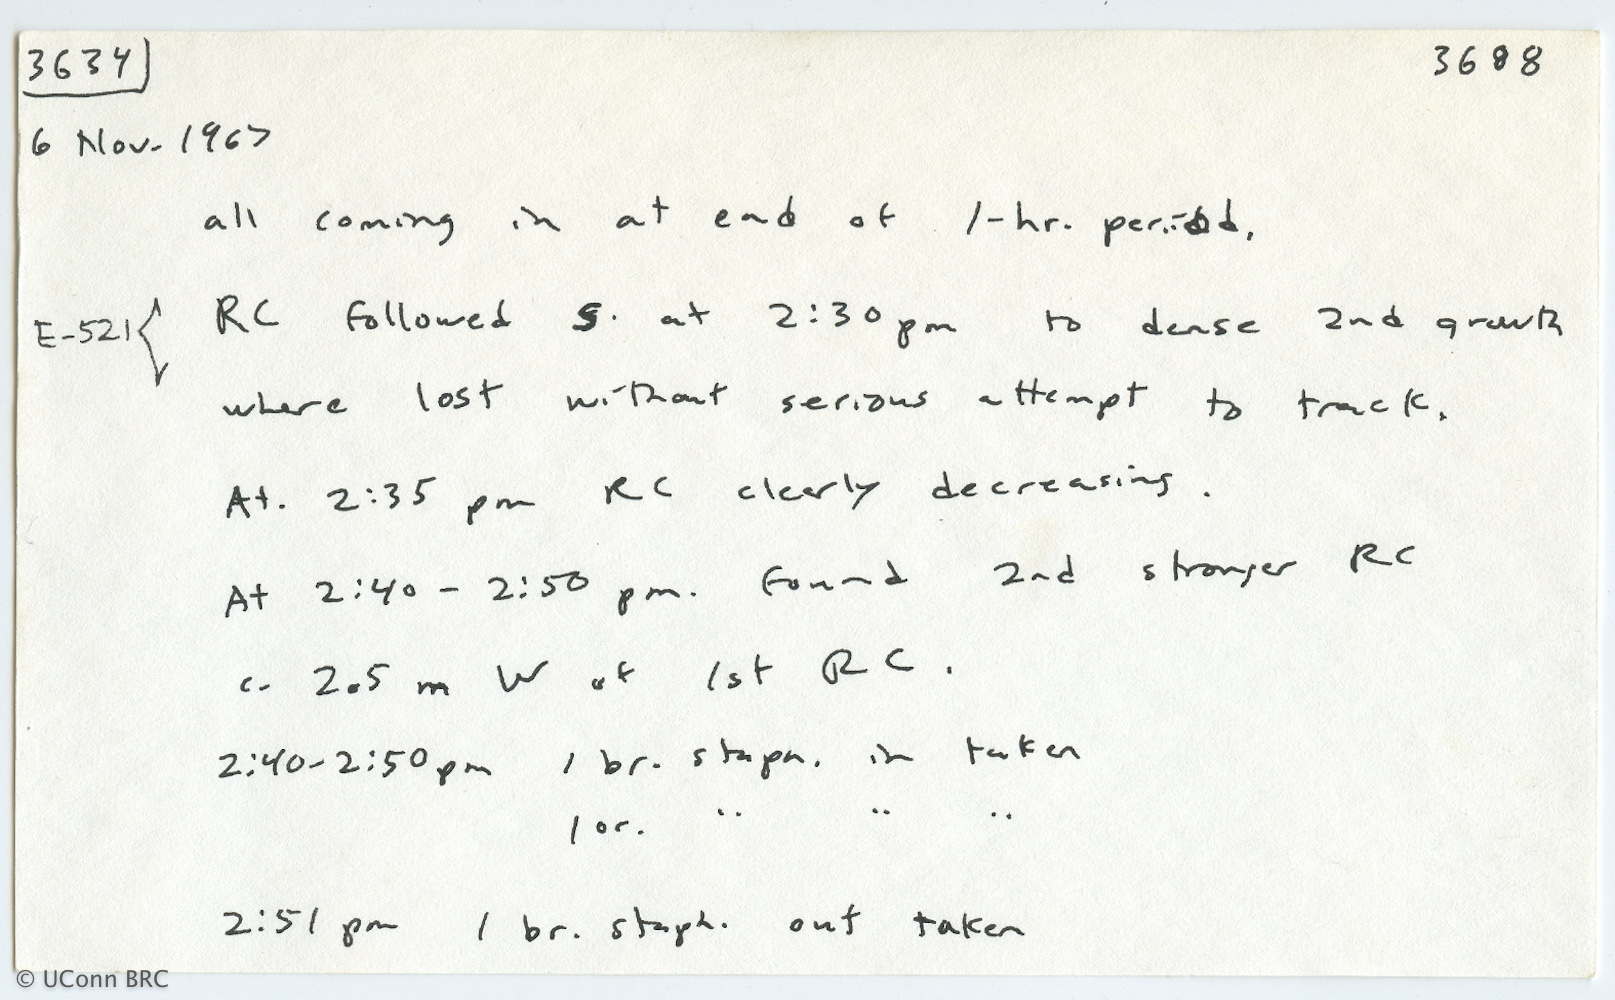 3634 3688
6 Nov. 1967
all coming in at end of 1-hr. period.
E-521 { RC followed S. at 2:30 pm to dense 2nd growth
where lost without serious attempt to track.
At. 2:35 pm RC clearly decreasing.
At 2:40 - 2:50 pm. found 2nd stronger RC
c. 2.5 m W of 1st RC.
2:40-2:50 pm 1 br. staph. in taken
1 or. " " "
2:51 pm 1 br. staph. out taken
© UConn BRC